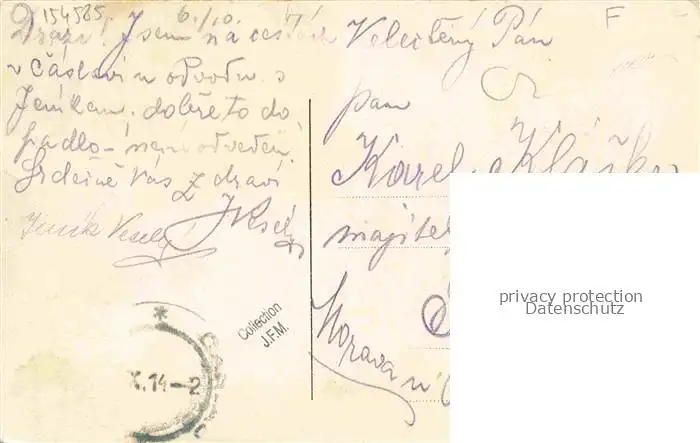 154585
6./10.
F
Drazí! Jsem na cestách
v Čáslavi u odvodu s
Jeníkem. dobře to do
padlo - není odveden.
Srdečně Vás zdraví
Jeník Veselý
Velectěný Pán
pan
Karel
majitel
Morava u
Collection
J.F.M.
X.14-2
privacy protection
Datenschutz